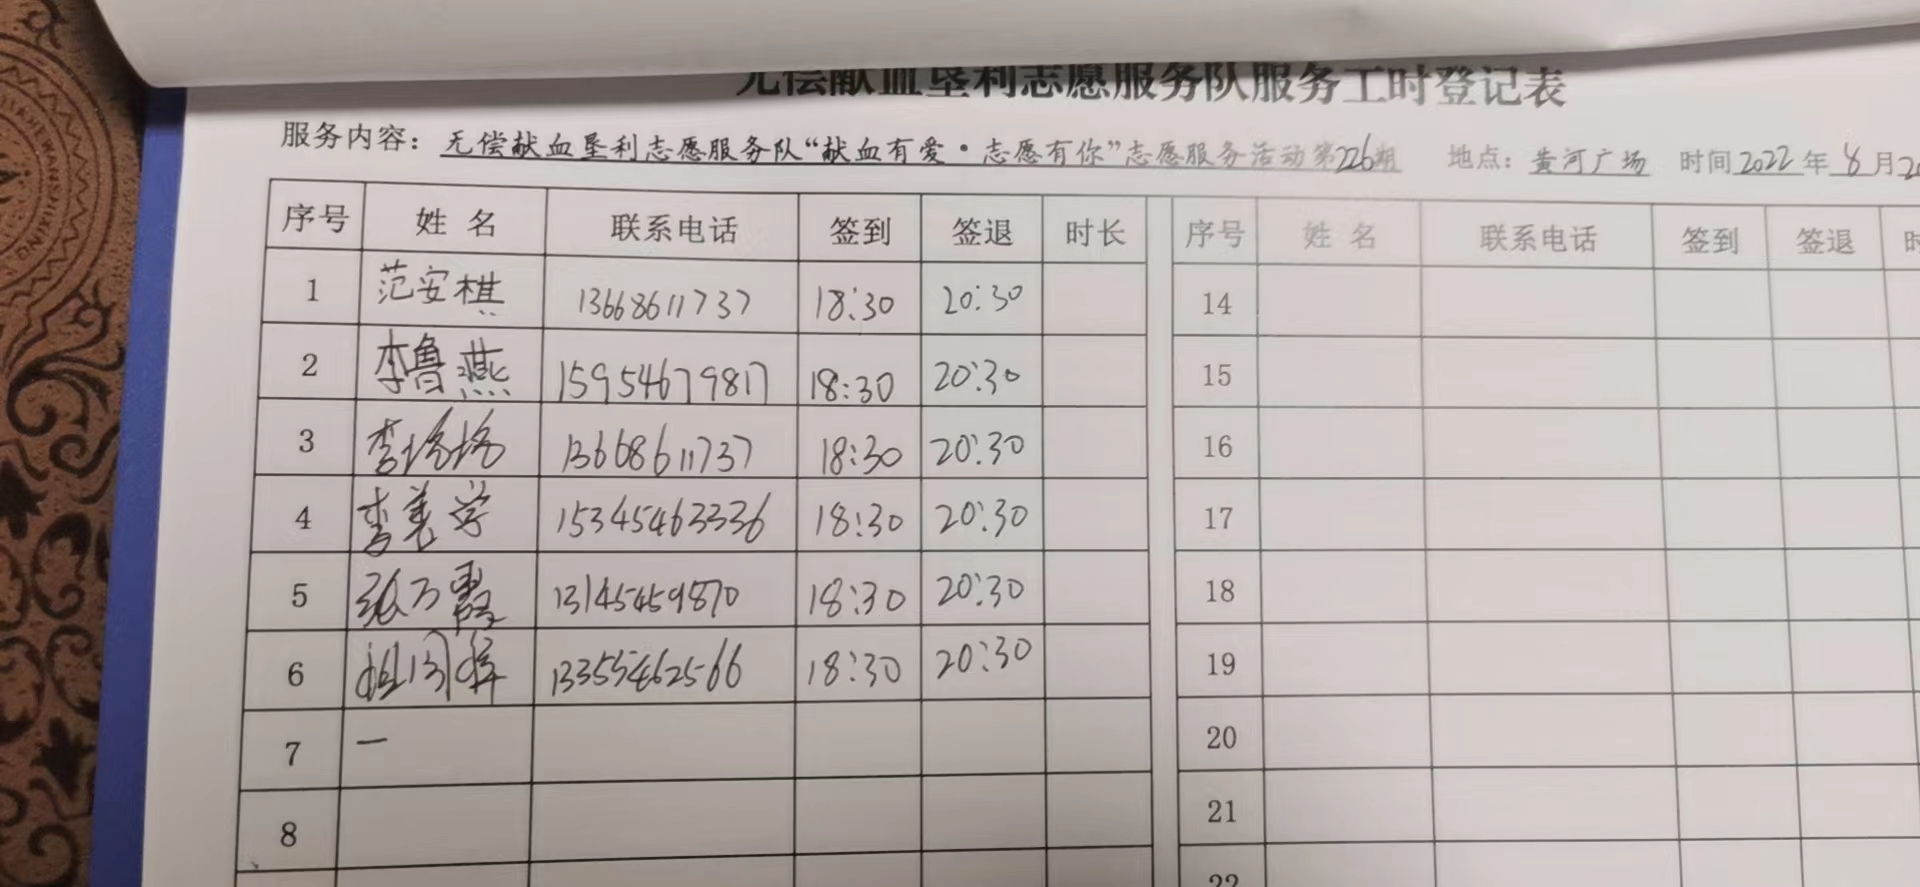 无偿献血垦利志愿服务队服务工时登记表
服务内容：无偿献血垦利志愿服务队“献血有爱·志愿有你”志愿服务活动第226期 地点：黄河广场 时间2022年8月20
序号 姓名 联系电话 签到 签退 时长 序号 姓名 联系电话 签到 签退 时
1 范安棋 13668611737 18:30 20:30 14
2 李鲁燕 15954679817 18:30 20:30 15
3 李 13668611737 18:30 20:30 16
4 李美学 15345463336 18:30 20:30 17
5 张万霞 13145459870 18:30 20:30 18
6 13355462566 18:30 20:30 19
7 一 20
8 21
22